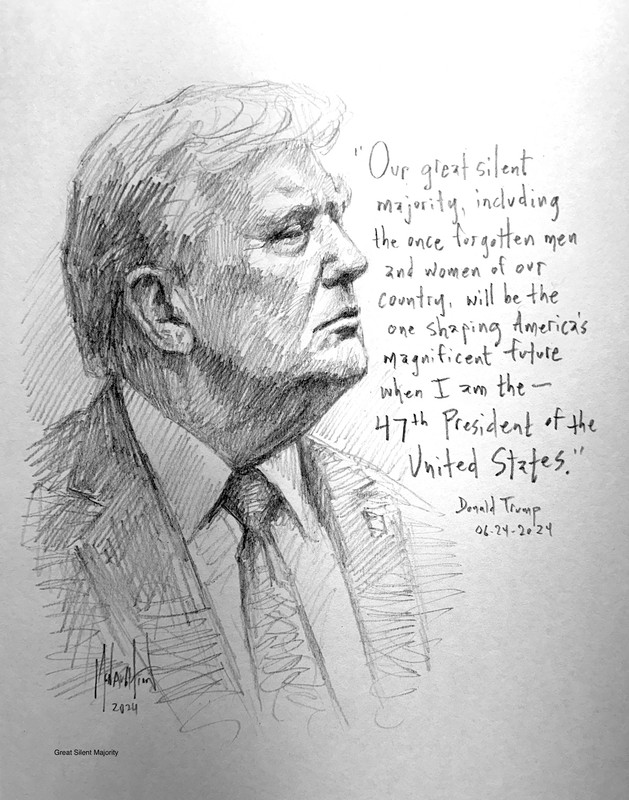 "Our great silent
majority, including
the once forgotten men
and women of our
country, will be the
one shaping America's
magnificent future
when I am the—
47th President of the
United States."
Donald Trump
06-24-2024
2024
Great Silent Majority